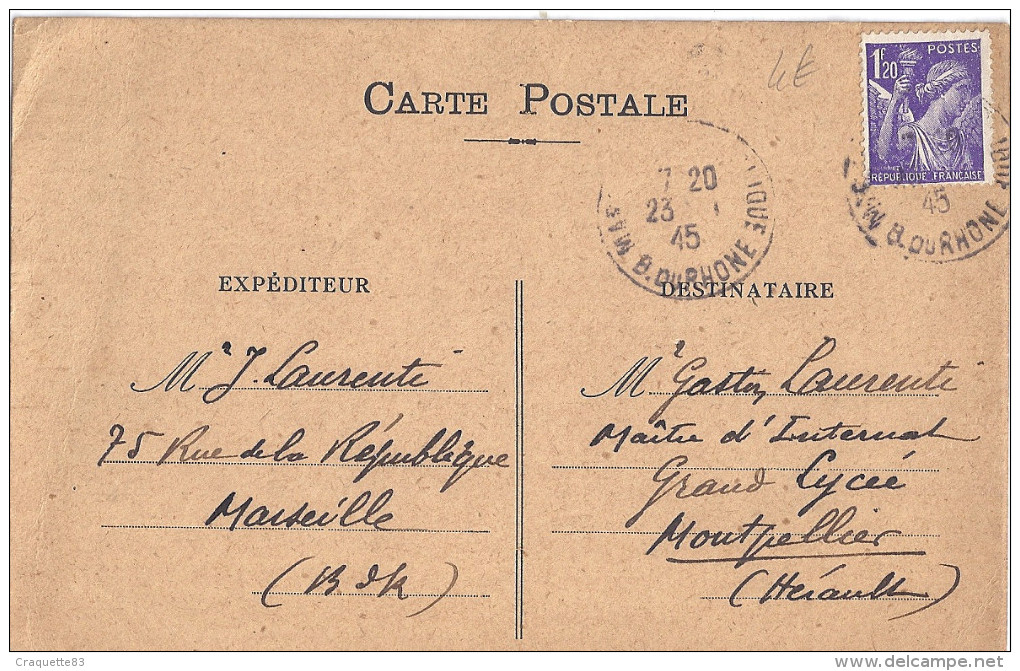 4€
1F20 POSTES
RÉPUBLIQUE FRANÇAISE
CARTE POSTALE
7 20
23
45
B. DU RHONE
45
B. DU RHONE
EXPÉDITEUR
Mr J. Laurenti
75 Rue de la République
Marseille
(B d R)
DESTINATAIRE
Mr Gaston Laurenti
Maître d'Internat
Grand Lycée
Montpellier
(Hérault)
Craquette83
delcampe.net